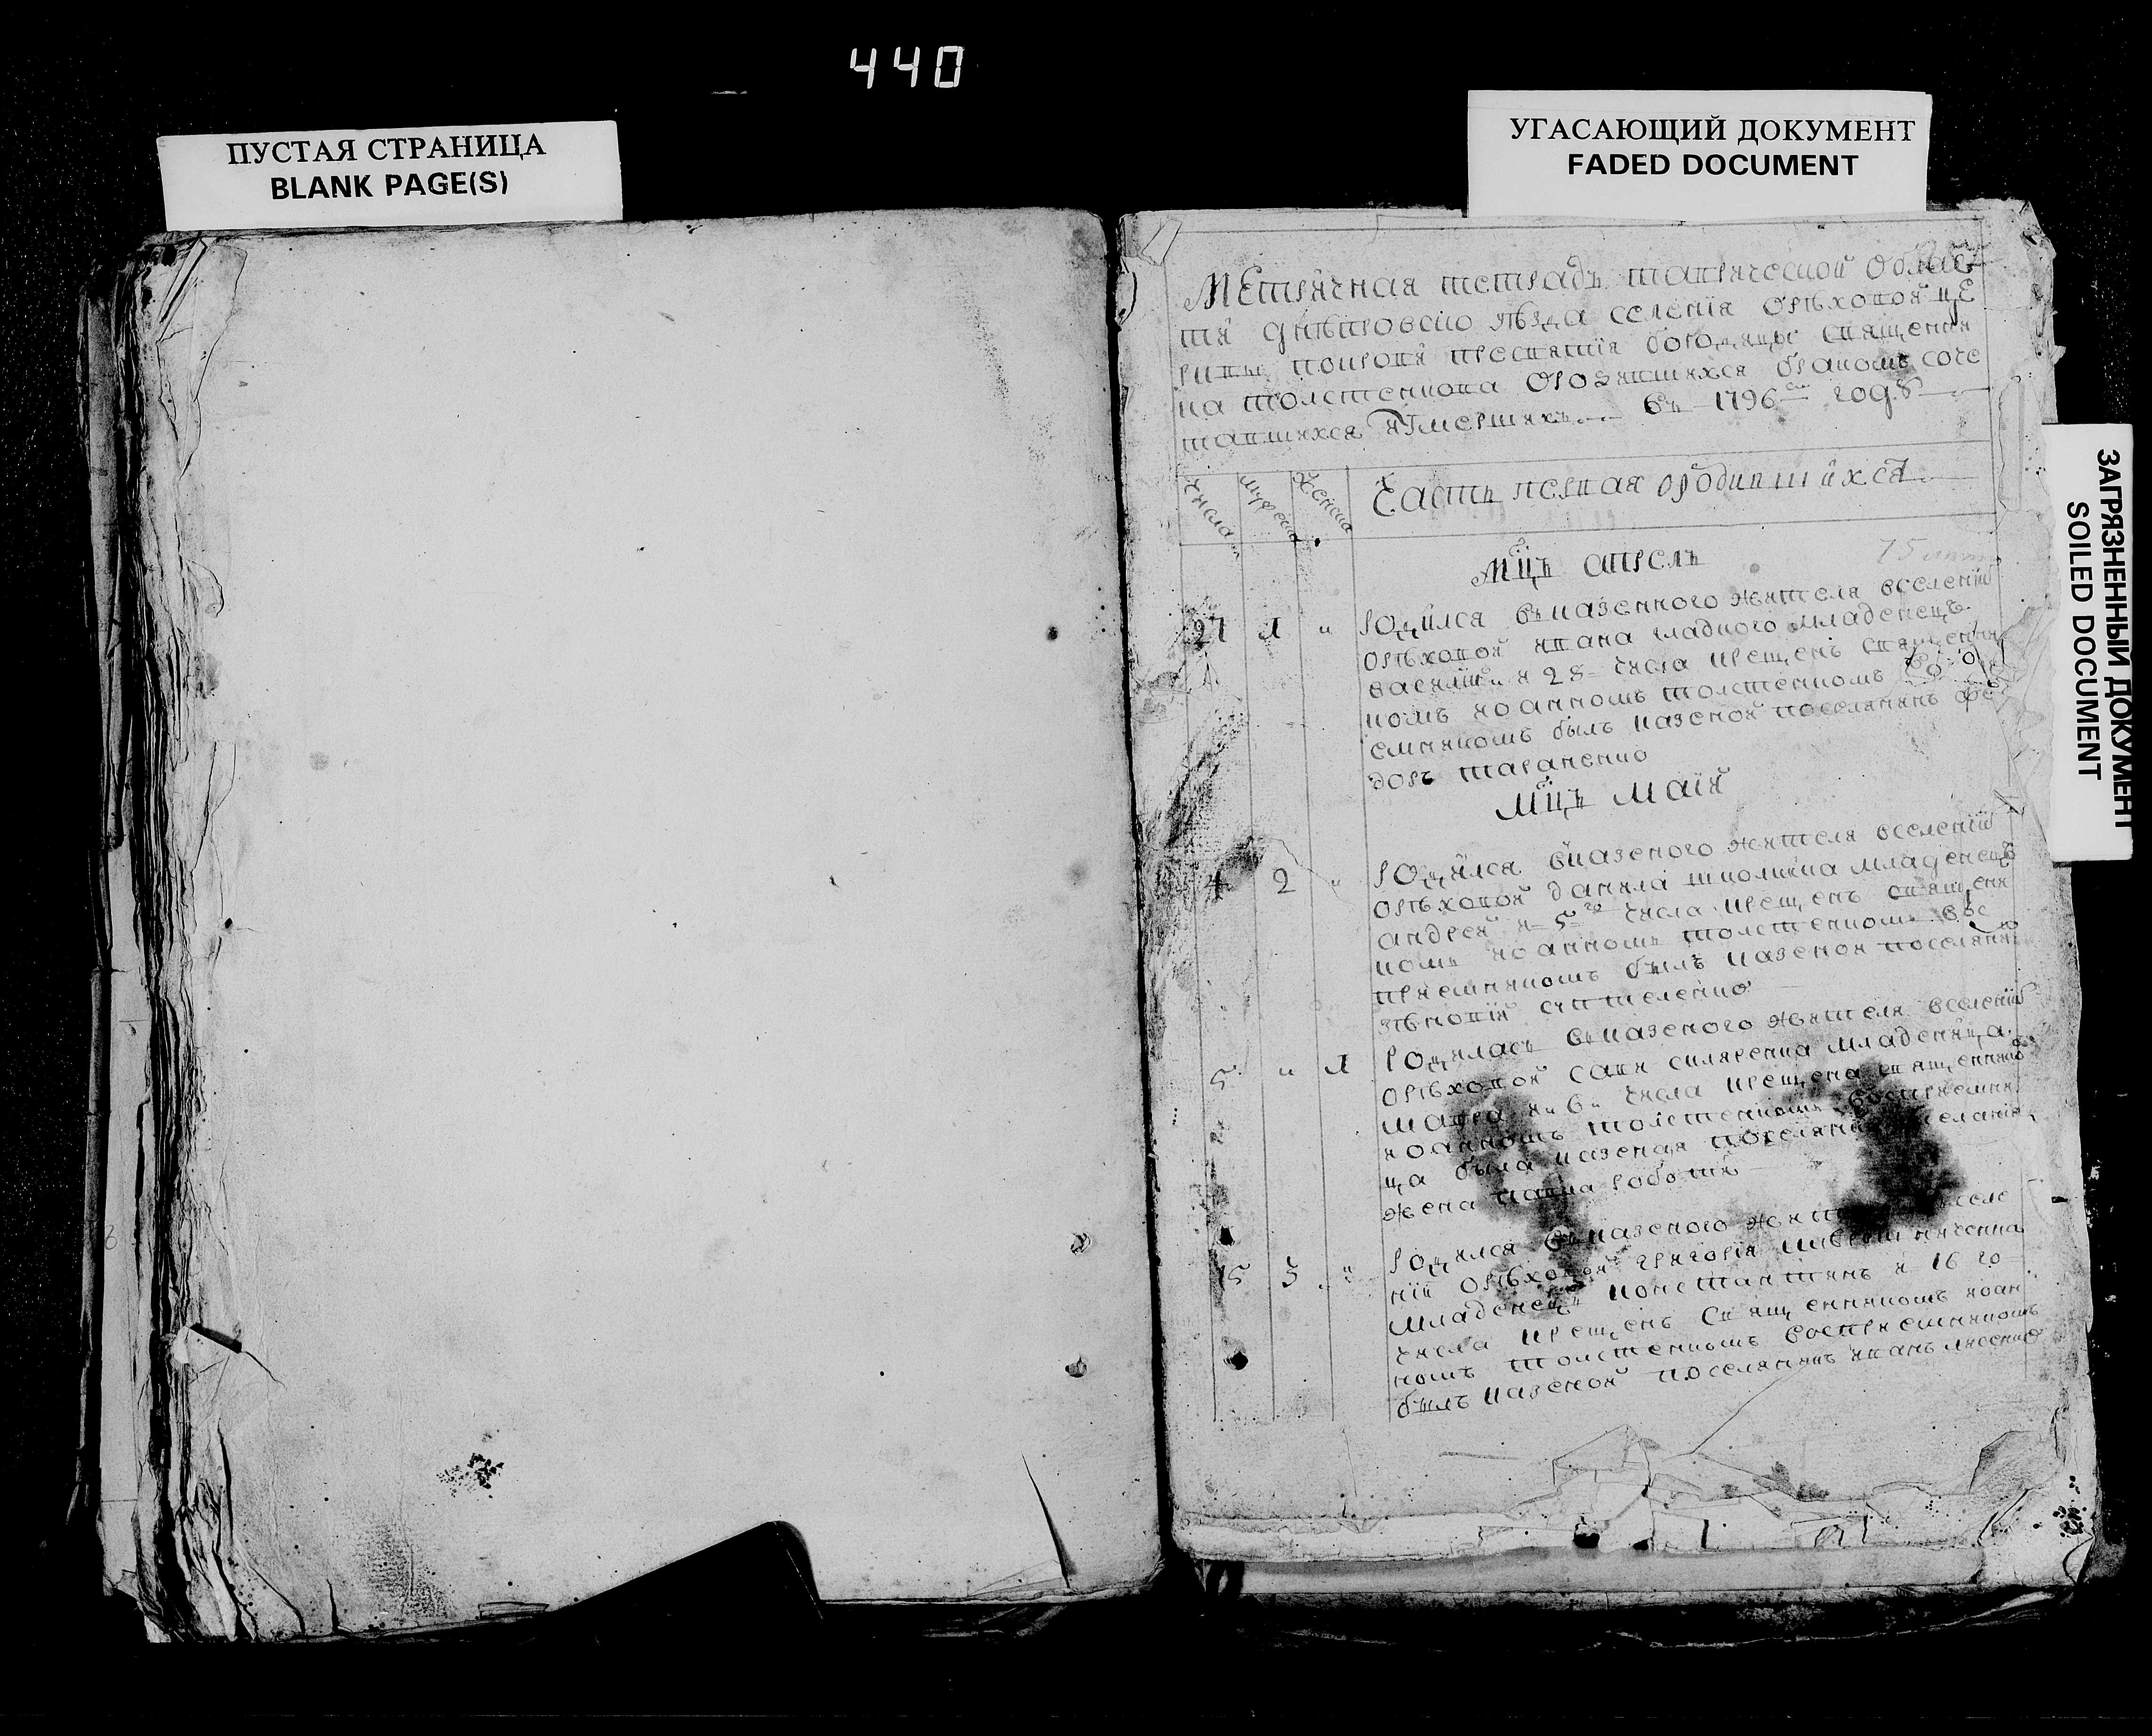 440
ПУСТАЯ СТРАНИЦА
BLANK PAGE(S)
УГАСАЮЩИЙ ДОКУМЕНТ
FADED DOCUMENT
ЗАГРЯЗНЕННЫЙ ДОКУМЕНТ
SOILED DOCUMENT
Метричная тетрадь таврической облас
ти днѣпровско уѣзда селенія Орѣховой це
рквы покрова пресвятія богородицы священни
ка толстенкова Ородившихся бракомъ соче
тавшихся иУмершихъ въ 1796 годѣ
числа
мужска
женска
Часть первая ородившихся
Мцъ апрель
27 1 " Родился вказенного жителя вселеніи
орѣховой ивана гладкого младенецъ
василій и 28 числа крещенъ священни
комъ иоанномъ толстенкомъ
емникомъ былъ казеной поселянинъ фе
доръ тараненко
Мцъ маія
4 2 " Родился вказеного жителя вселеніи
орѣховой данила младенецъ
андрей и 5 го числа крещенъ священи
комъ иоанномъ толстенкомъ вос
приемникомъ былъ казеной поселянин
5 " 1 Родилась вказеного жителя вселеніи
орѣховой сави скляренка младеница
и 6 числа крещена священнико
иоанномъ толстенкомъ восприемни
ца была казеная
жена
15 3 " Родился вказеного вселе
ніи орѣховой григорія
младенецъ константинъ и 16 го
числа крещенъ священникомъ иоан
номъ толстенкомъ восприемникомъ
былъ казеной поселянинъ иванъ